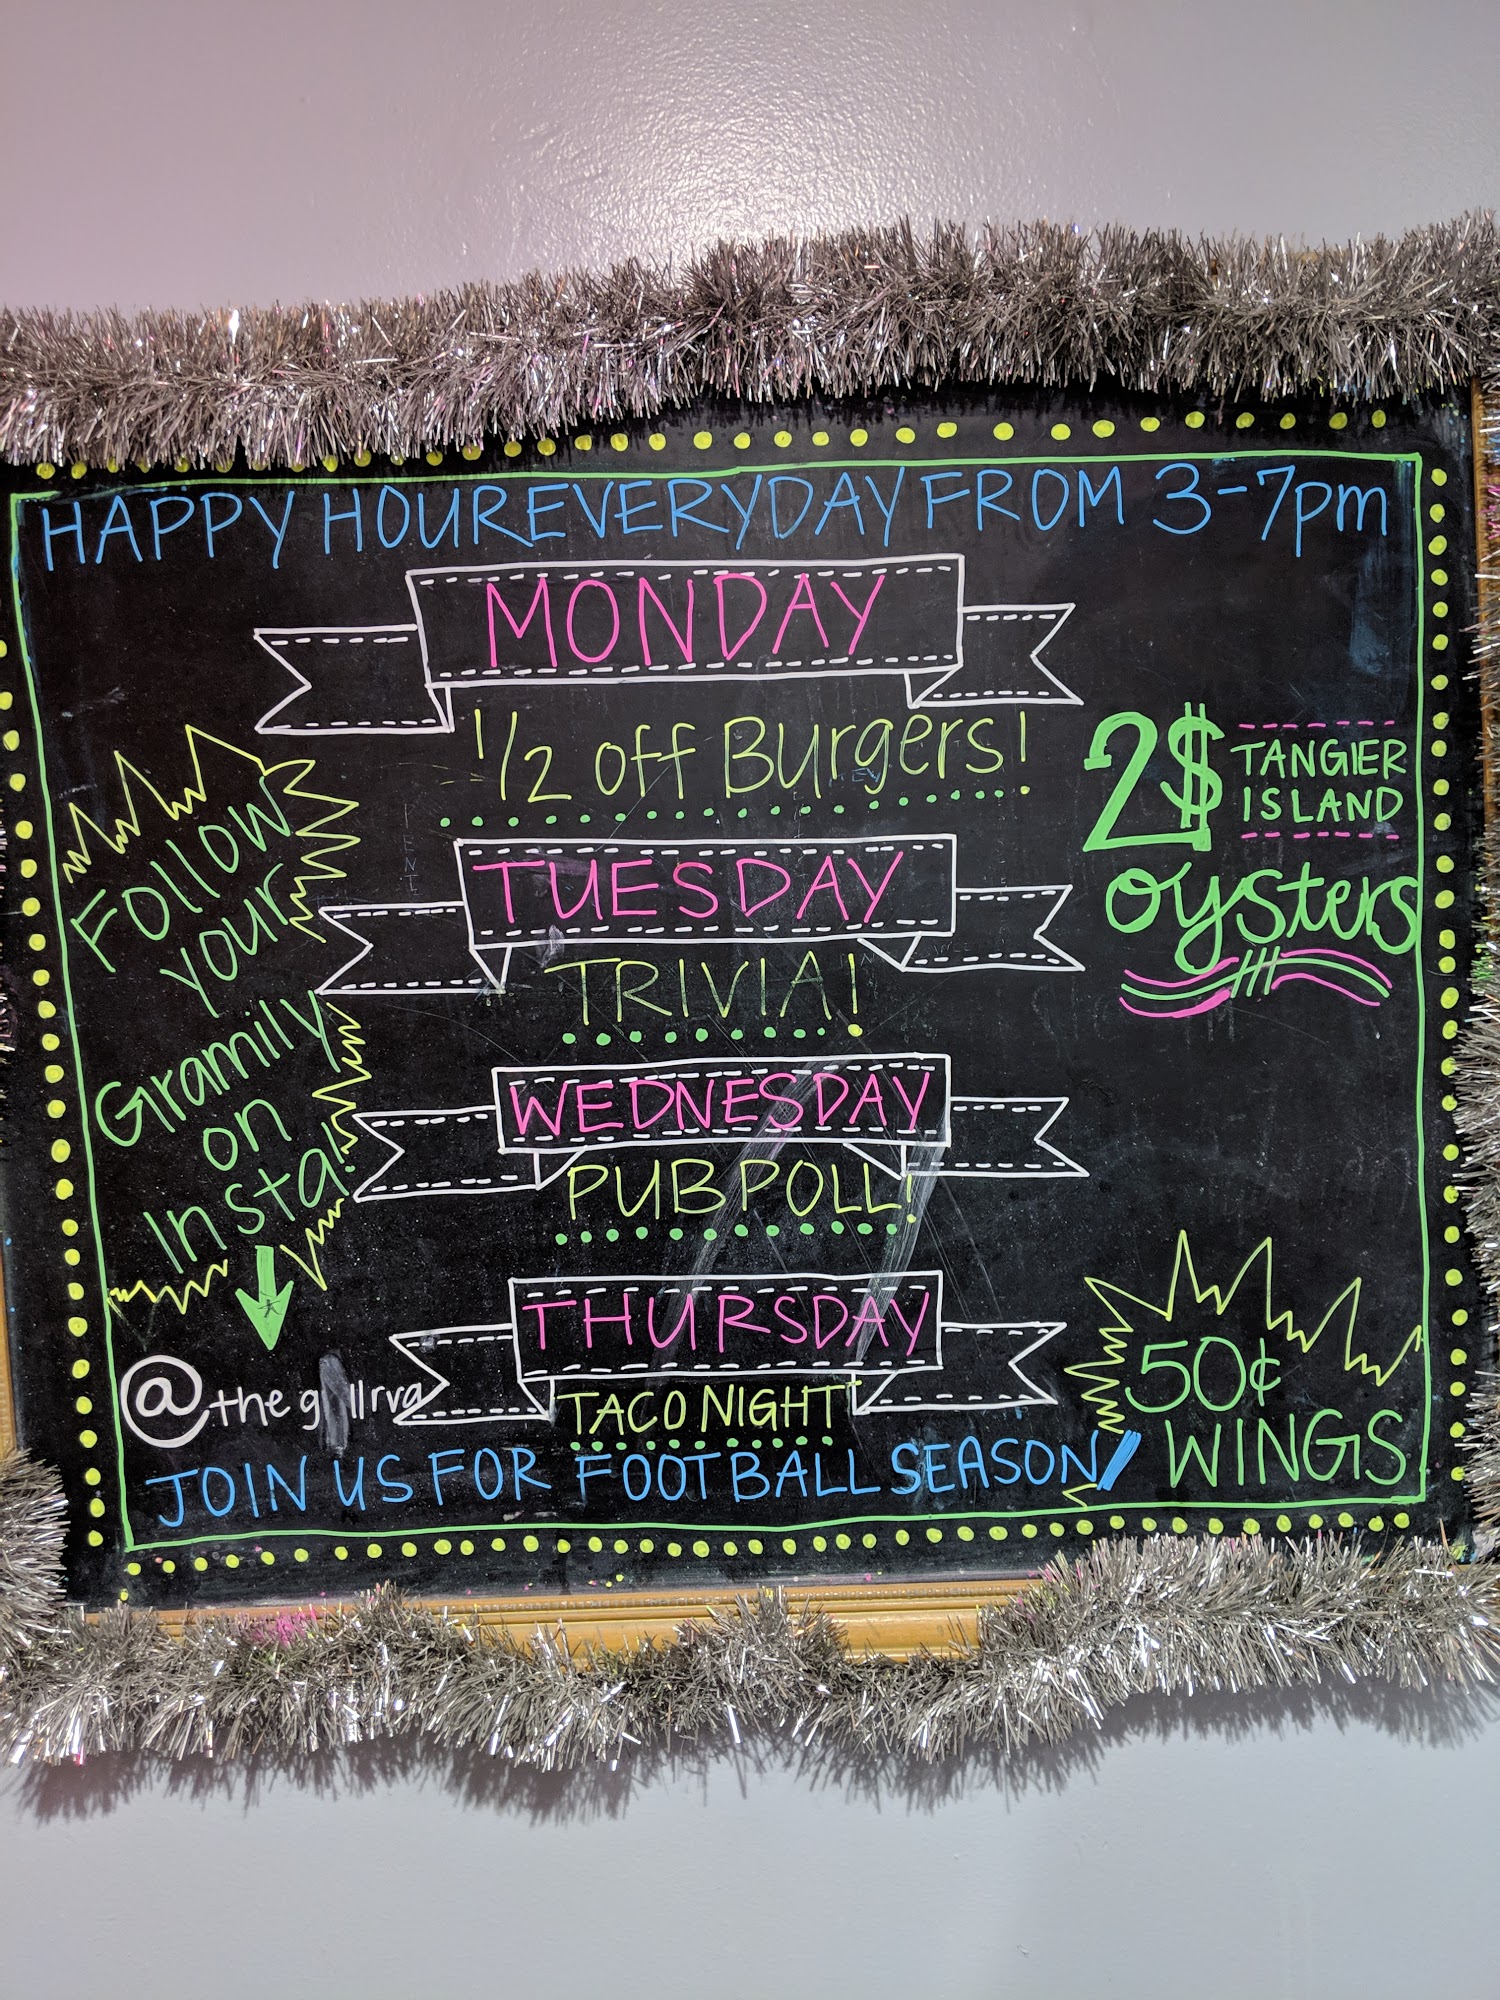 HAPPY HOUR EVERYDAY FROM 3-7pm
MONDAY
1/2 off Burgers!
TUESDAY
TRIVIA!
WEDNESDAY
PUB POLL!
THURSDAY
TACO NIGHT
Follow
your
Gramily
on
Insta!
JOIN US FOR FOOTBALL SEASON
2$ TANGIER
ISLAND
oysters
50¢
WINGS